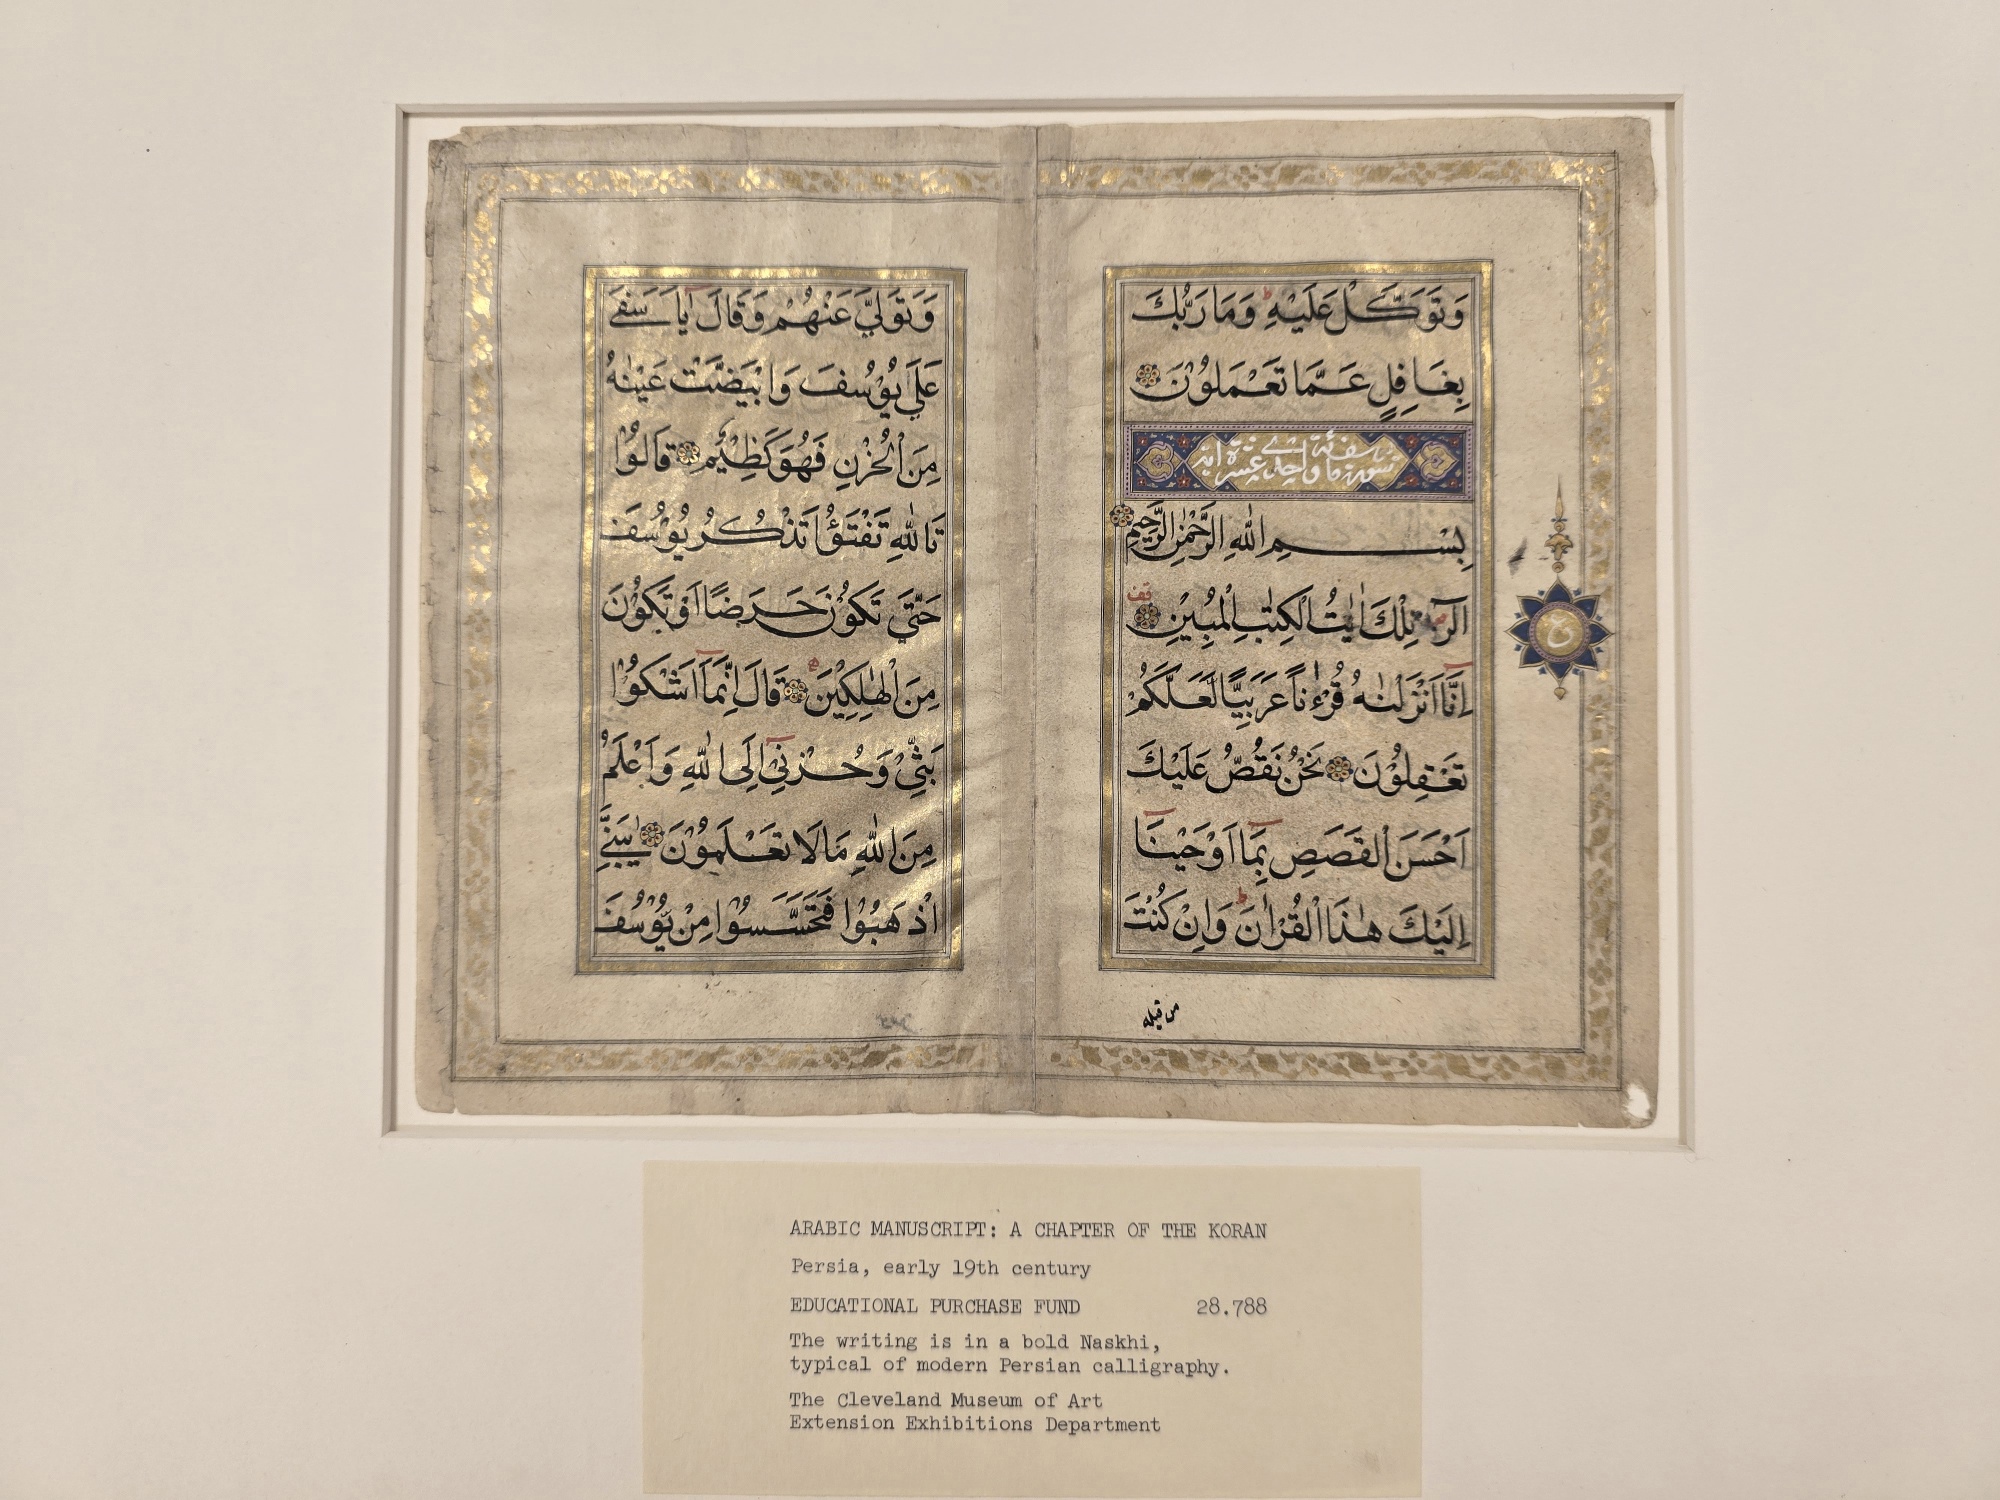 وَتَوَكَّلْ عَلَيْهِ وَمَا رَبُّكَ
بِغَافِلٍ عَمَّا تَعْمَلُوْنَ
بِسْمِ اللّٰهِ الرَّحْمٰنِ الرَّحِيْمِ
الٓرٰ تِلْكَ اٰيٰتُ الْكِتٰبِ الْمُبِيْنِ
اِنَّآ اَنْزَلْنٰهُ قُرْءٰنًا عَرَبِيًّا لَّعَلَّكُمْ
تَعْقِلُوْنَ نَحْنُ نَقُصُّ عَلَيْكَ
اَحْسَنَ الْقَصَصِ بِمَآ اَوْحَيْنَآ
اِلَيْكَ هٰذَا الْقُرْاٰنَ وَاِنْ كُنْتَ
من قبله
ع
وَتَوَلّٰي عَنْهُمْ وَقَالَ يٰٓاَسَفٰي
عَلٰي يُوْسُفَ وَابْيَضَّتْ عَيْنٰهُ
مِنَ الْحُزْنِ فَهُوَ كَظِيْمٌ قَالُوْا
تَاللّٰهِ تَفْتَؤُا تَذْكُرُ يُوْسُفَ
حَتّٰي تَكُوْنَ حَرَضًا اَوْ تَكُوْنَ
مِنَ الْهٰلِكِيْنَ قَالَ اِنَّمَآ اَشْكُوْا
بَثِّيْ وَحُزْنِيْٓ اِلَي اللّٰهِ وَاَعْلَمُ
مِنَ اللّٰهِ مَا لَا تَعْلَمُوْنَ يٰبَنِيَّ
اذْهَبُوْا فَتَحَسَّسُوْا مِنْ يُوْسُفَ
ARABIC MANUSCRIPT: A CHAPTER OF THE KORAN
Persia, early 19th century
EDUCATIONAL PURCHASE FUND 28.788
The writing is in a bold Naskhi,
typical of modern Persian calligraphy.
The Cleveland Museum of Art
Extension Exhibitions Department